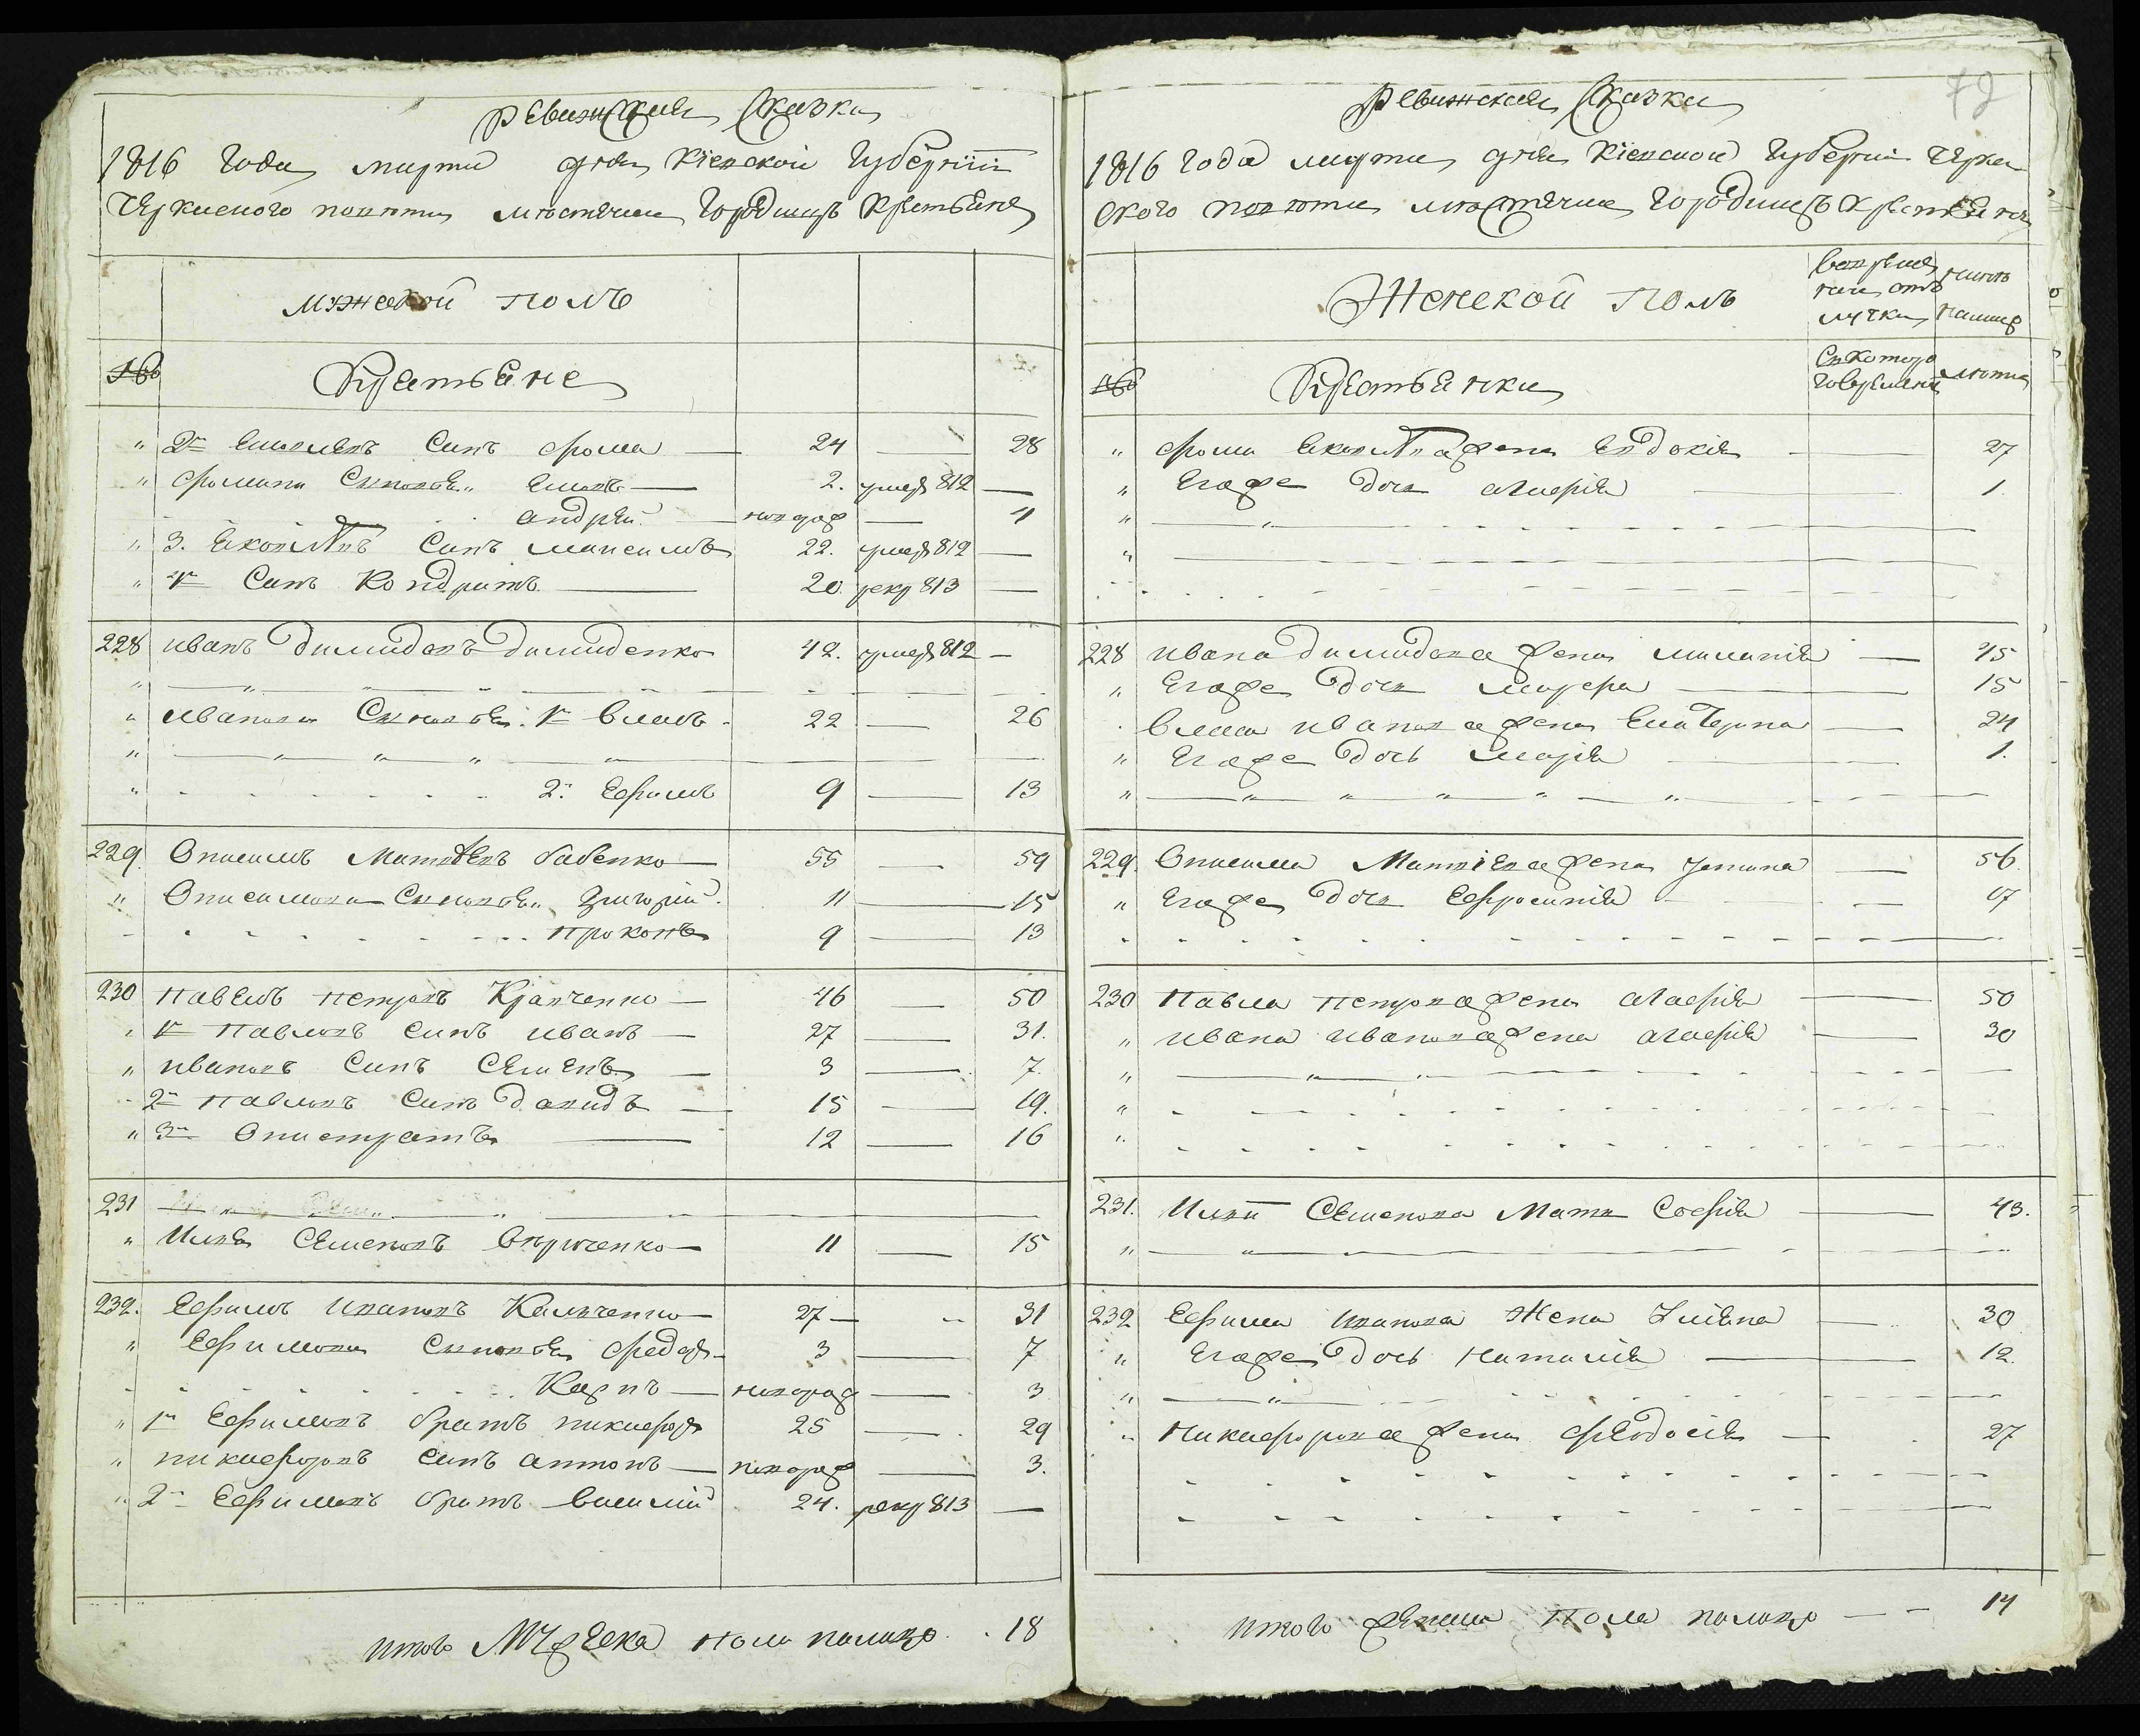 Ревижская Сказка
1816 года марта дня Кіевской Губерніи
Черкаского повѣта мѣстечка Городища Крестьяне
мужеской полъ
Крестьяне
" 2й Сынъ Фома — 24 — 28
" Фомины Сыновья Емель — 2. умеръ 812 —
Андрей — новорож — 4
" 3. Яковлевъ Сынъ Максимъ 22. умеръ 812 —
" 4 Сынъ Кондратъ — 20. рекр 813 —
228 Иванъ Димидовъ Димиденко 42. умеръ 812 —
" Ивановы Сыновья 1й Власъ 22 — 26
" 2й Ефимъ 9 — 13
229 Онисимъ Матвѣевъ Бабенко — 55 — 59
" Онисимовы Сыновья Григорій 11 — 15
Прокопъ 9 — 13
230 Павелъ Петровъ Кравченко — 46 — 50
" 1й Павловъ Сынъ Иванъ — 27 — 31.
" Ивановъ Сынъ Семенъ — 3 — 7.
2й Павловъ Сынъ Давидъ — 15 — 19.
" 3й Онистратъ — 12 — 16
231
" Илья Семеновъ — 11 — 15
232. Ефимъ Ивановъ Кальченко — 27 — 31
" Ефимовы Сыновья Федоръ 3 — 7
Карпъ — новорож — 3
" 1й Ефимовъ братъ Никифоръ 25 — 29
" Никифоровъ Сынъ Антонъ — новорож — 3.
" 2й Ефимовъ братъ Василій 24. рекр 813 —
итого Мужеска пола налицо 18
72
Ревижская Сказка
1816 года марта дня Кіевской Губерніи Черка
ского повѣта мѣстечка Городища Крестьяне
Женской полъ
во время
отъ
лучки
нынѣ
налицо
Крестьянки
Съ котораго
времени
лѣта
" Фомы жена Евдокія — 27
" Егоже дочь Агафія — 1.
228 Ивана Димидова жена Миланія — 45
" Егоже дочь Марфа — 15
Власа Иванова жена Екатерина — 24
" Егоже дочь Марія — 1.
229. Онисима Матвіева жена Уляна — 56.
" Егоже дочь Ефросинія — 17
230 Павла Петрова жена Агафія — 50
" Ивана Иванова жена Агафія — 30
231. Ильи Семенова Мать Софія — 43.
232 Ефима Иванова Жена — 30
" Егоже дочь Наталія — 12.
" Никифорова жена Феодосія — 27
итого женска пола налицо — — 14